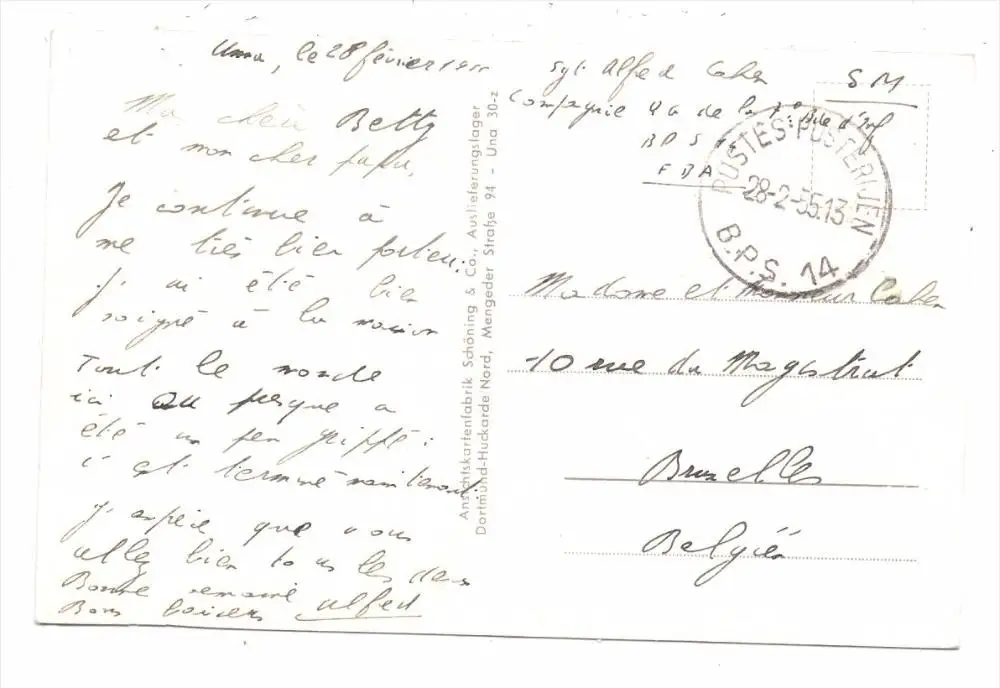 Unna, le 28 février 1955
Ma chère Betty
et mon cher papa,
Je continue à
me très bien porter.
J'ai été bien
soigné à la maison
Tout le monde
ici ou presque a
été un peu grippé :
c'est terminé maintenant.
J'espère que vous
allez bien tous les deux
Bonne semaine
Bons baisers Alfred
Ansichtskartenfabrik Schöning & Co., Auslieferungslager
Dortmund-Huckarde Nord, Mengeder Straße 94 - Una 30-z
Sgt. Alfred Cahen
Compagnie de la Bde d'Inf
BPS
FBA
SM
POSTES-POSTERIJEN
28-2-55.13
B.P.S. 14
Madame et Monsieur Cahen
10 rue du Magistrat
Bruxelles
Belgien